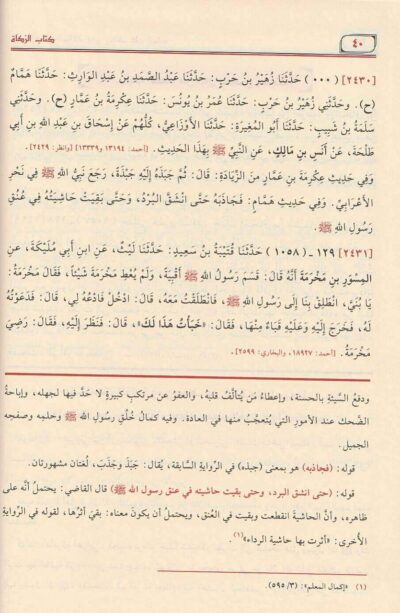 ٤٠
كتاب الزكاة
[٢٤٣٠] (٠٠٠) حَدَّثَنَا زُهَيْرُ بنُ حَرْبٍ: حَدَّثَنَا عَبْدُ الصَّمَدِ بنُ عَبْدِ الوَارِثِ: حَدَّثَنَا هَمَّامٌ
(ح). وحَدَّثَنِي زُهَيْرُ بنُ حَرْبٍ: حَدَّثَنَا عُمَرُ بنُ يُونُسَ: حَدَّثَنَا عِكْرِمَةُ بنُ عَمَّارٍ (ح). وحَدَّثَنِي
سَلَمَةُ بنُ شَبِيبٍ: حَدَّثَنَا أَبُو المُغِيرَةِ: حَدَّثَنَا الأَوْزَاعِيُّ، كُلُّهُمْ عَنْ إِسْحَاقَ بنِ عَبْدِ اللهِ بنِ أَبِي
طَلْحَةَ، عَنْ أَنَسِ بنِ مَالِكٍ، عَنِ النَّبِيِّ ﷺ بِهَذَا الحَدِيثِ. [أحمد: ١٣١٩٤ و١٣٣٣٩] [وانظر: ٢٤٢٩].
وَفِي حَدِيثِ عِكْرِمَةَ بنِ عَمَّارٍ مِنَ الزِّيَادَةِ: قَالَ: ثُمَّ جَبَذَهُ إِلَيْهِ جَبْذَةً، رَجَعَ نَبِيُّ اللهِ ﷺ فِي نَحْرِ
الأَعْرَابِيِّ. وَفِي حَدِيثِ هَمَّامٍ: فَجَاذَبَهُ حَتَّى انْشَقَّ البُرْدُ، وَحَتَّى بَقِيَتْ حَاشِيَتُهُ فِي عُنُقِ
رَسُولِ اللهِ ﷺ.
[٢٤٣١] ١٢٩ - (١٠٥٨) حَدَّثَنَا قُتَيْبَةُ بنُ سَعِيدٍ: حَدَّثَنَا لَيْثٌ، عَنِ ابنِ أَبِي مُلَيْكَةَ، عَنِ
المِسْوَرِ بنِ مَخْرَمَةَ أَنَّهُ قَالَ: قَسَمَ رَسُولُ اللهِ ﷺ أَقْبِيَةً، وَلَمْ يُعْطِ مَخْرَمَةَ شَيْئًا، فَقَالَ مَخْرَمَةُ:
يَا بُنَيَّ، انْطَلِقْ بِنَا إِلَى رَسُولِ اللهِ ﷺ، فَانْطَلَقْتُ مَعَهُ، قَالَ: ادْخُلْ فَادْعُهُ لِي، قَالَ: فَدَعَوْتُهُ
لَهُ، فَخَرَجَ إِلَيْهِ وَعَلَيْهِ قَبَاءٌ مِنْهَا، فَقَالَ: «خَبَأْتُ هَذَا لَكَ»، قَالَ: فَنَظَرَ إِلَيْهِ، فَقَالَ: رَضِيَ
مَخْرَمَةُ. [أحمد: ١٨٩٢٧، والبخاري: ٢٥٩٩].
ودفعُ السيِّئةِ بالحسنة، وإعطاءُ مَن يُتألَّفُ قلبُه، والعفوُ عن مرتكبِ كبيرةٍ لا حدَّ فيها لجهله، وإباحةُ
الضَّحك عند الأمورِ التي يُتعجَّبُ منها في العادة. وفيه كمالُ خُلُقِ رسولِ الله ﷺ وحلمِه وصفحِه
الجميل.
قوله: (فجاذبه) هو بمعنى (جبذه) في الرِّوايةِ السابقة، يُقال: جَبَذَ وجَذَبَ، لُغتان مشهورتان.
قوله: (حتى انشق البرد، وحتى بقيت حاشيته في عنق رسول الله ﷺ) قال القاضي: يحتملُ أنَّه على
ظاهرِه، وأنَّ الحاشيةَ انقطعت وبقيت في العُنق، ويحتمل أن يكونَ معناه: بقيَ أثرُها، لقوله في الرِّوايةِ
الأُخرى: «أثرت بها حاشية الرداء»(١).
(١) «إكمال المعلم»: (٣/ ٥٩٥).